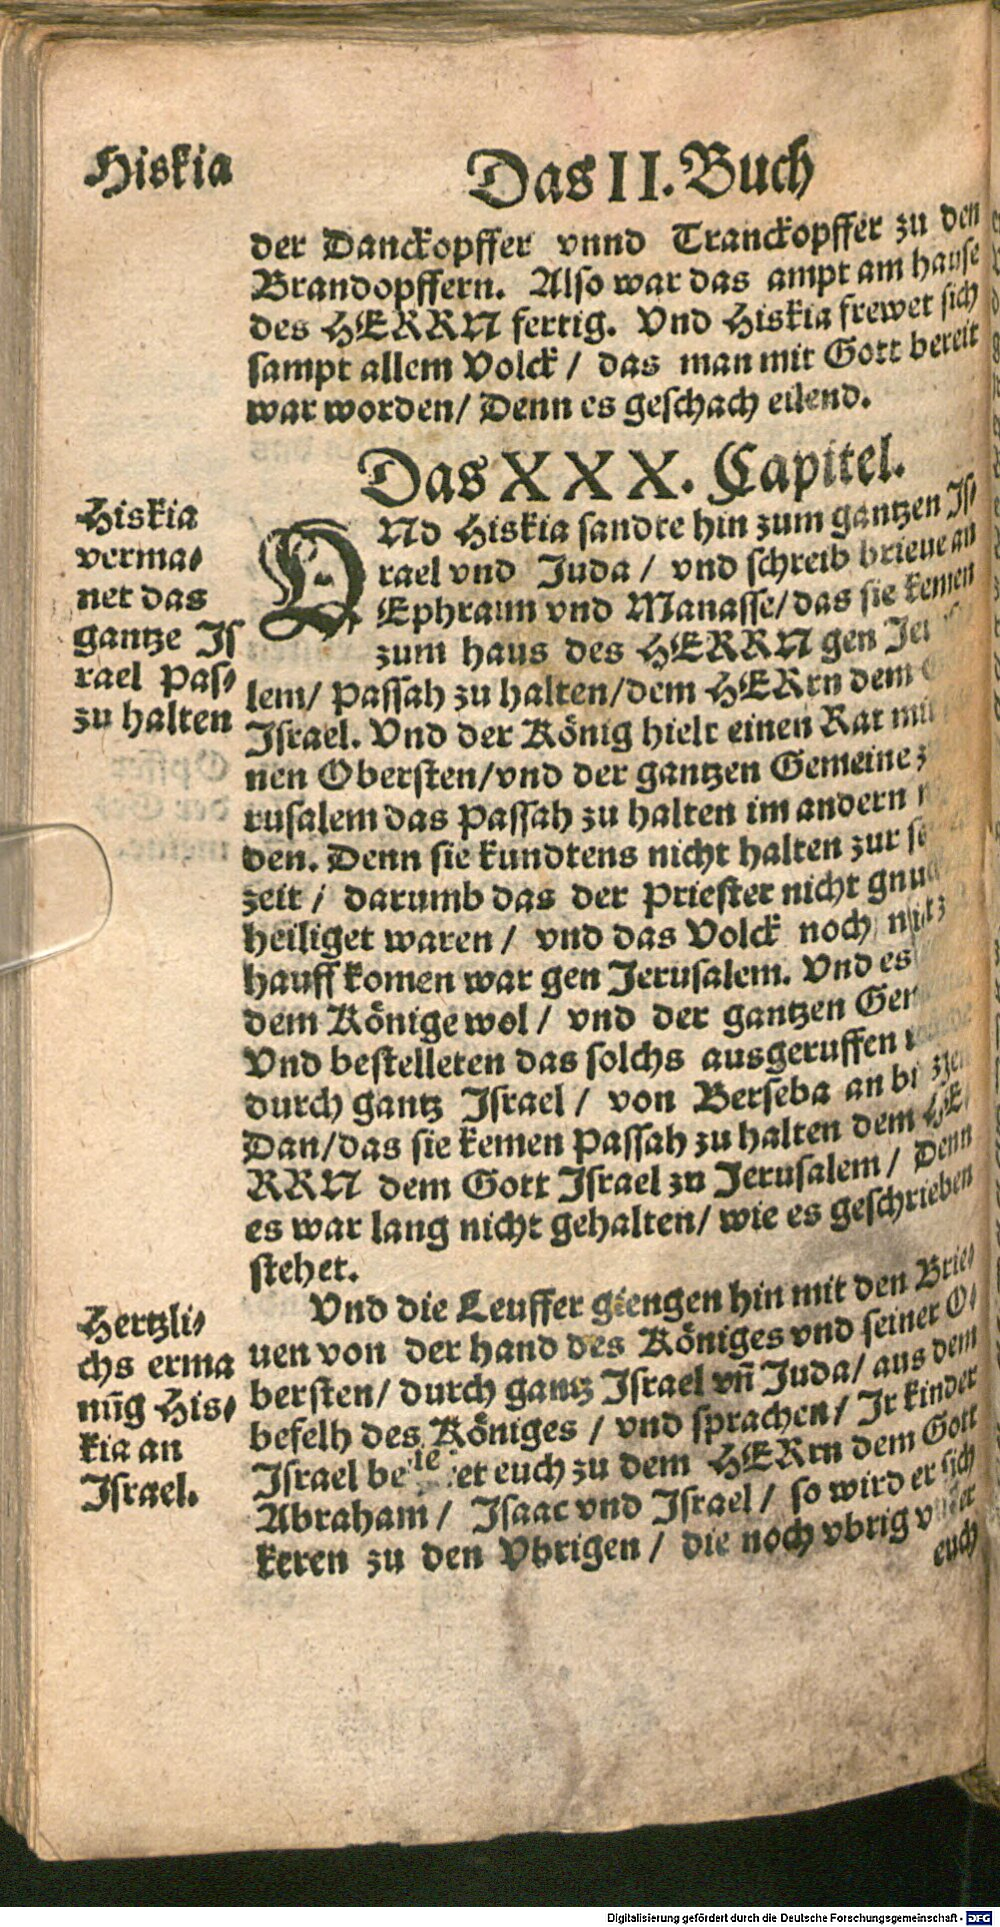 Hiskia
Das II. Buch
der Danckopffer vnnd Tranckopffer zu den
Brandopffern. Also war das ampt am hause
des HERRN fertig. Vnd Hiskia frewet sich
sampt allem Volck / das man mit Gott bereit
war worden/ Denn es geschach eilend.
Das XXX. Capitel.
Hiskia
verma⸗
net das
gantze Is
rael Pas⸗
zu halten
VNd Hiskia sandte hin zum gantzen Is⸗
rael vnd Juda / vnd schreib brieue an
Ephraim vnd Manasse/das sie kemen
zum haus des HERRN gen
lem/ Passah zu halten/dem HERrn dem
Israel. Vnd der König hielt einen Rat mit
nen Obersten/vnd der gantzen Gemeine
rusalem das Passah zu halten im andern
den. Denn sie kundtens nicht halten zur
zeit / darumb das der Priester nicht gnug
heiliget waren / vnd das Volck noch
hauff komen war gen Jerusalem. Vnd es
dem Könige wol / vnd der gantzen
Vnd bestelleten das solchs ausgeruffen
durch gantz Israel / von Berseba an
Dan/das sie kemen Passah zu halten dem HE⸗
RRN dem Gott Israel zu Jerusalem / Denn
es war lang nicht gehalten/ wie es geschrieben
stehet.
Vnd die Leuffer giengen hin mit den Brie⸗
uen von der hand des Königes vnd seiner O⸗
bersten/ durch gantz Israel vñ Juda/ aus dem
befelh des Königes / vnd sprachen/ Ir kinder
Israel euch zu dem HERrn dem Gott
Abraham / Isaac vnd Israel / so wird er sich
keren zu den Vbrigen / die noch vbrig
euch
Hertzli⸗
chs erma
nūg His⸗
kia an
Israel.
Digitalisierung gefördert durch die Deutsche Forschungsgemeinschaft - DFG